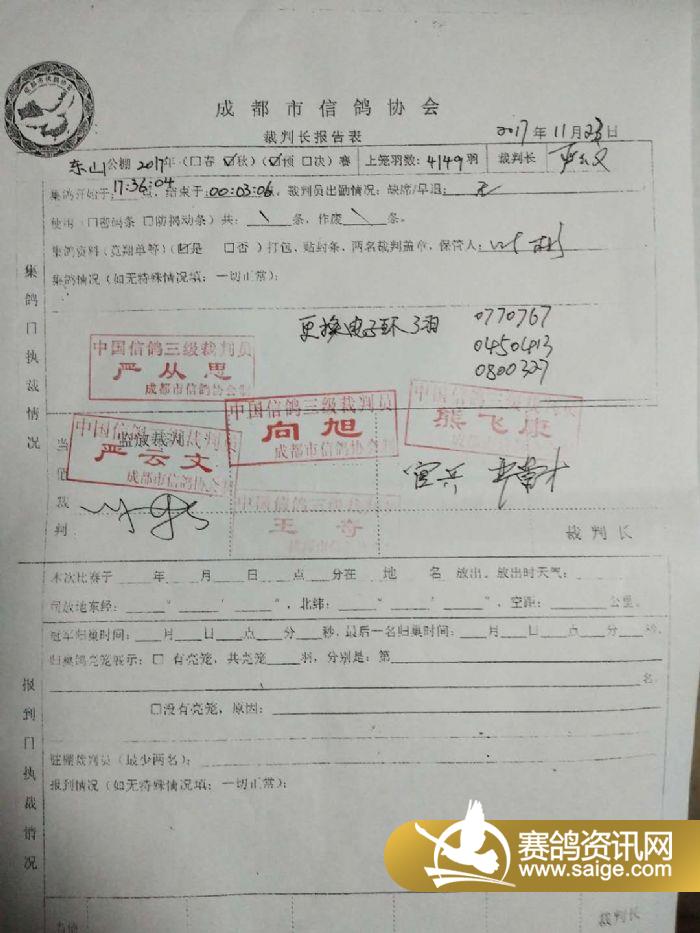 成都市信鸽协会
裁判长报告表
2017年11月23日
东山公棚2017年(□春 ☑秋)(☑预 □决)赛 上笼羽数:4149羽 裁判长
集鸽开始于:17:36:04点,结束于:00:03:06,裁判员出勤情况:缺席/早退:无
使用(□密码条 □防撕动条)共:\条,作废\条。
集鸽资料(竞翔单等)(☑是 □否)打包,贴封条,两名裁判盖章,保管人:
集鸽情况(如无特殊情况填:一切正常):
更换电子环3羽 0770767
0450413
0800327
集鸽门执裁情况
中国信鸽三级裁判员
严从思
成都市信鸽协会制
中国信鸽三级裁判员
向旭
成都市信鸽协会制
中国信鸽三级裁判员
熊飞康
监放裁判
中国信鸽三级裁判员
严云文
成都市信鸽协会制
王奇
当值裁判
裁判长
本次比赛于___年___月___日___点___分在 地 名 放出,放出时天气:
司放地东经:___°___′___″,北纬:___°___′___″,空距:___公里。
冠军归巢时间:___月___日___点___分___秒,最后一名归巢时间:___月___日___点___分___秒。
归巢鸽亮笼展示:□ 有亮笼,共亮笼___羽,分别是:第
名。
□没有亮笼,原因:
驻棚裁判员(最少两名):
报到情况(如无特殊情况填:一切正常):
报到门执裁情况
当值
裁判长
赛鸽资讯网
www.saige.com